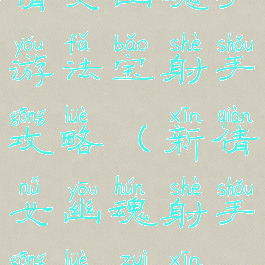 倩女幽魂
yóu fǎ bǎo shè shǒu
游法宝射手
gōng lüè xīn qiàn
攻略(新倩
nǚ yōu hún shè shǒu
女幽魂射手
gōng lüè zuì xīn